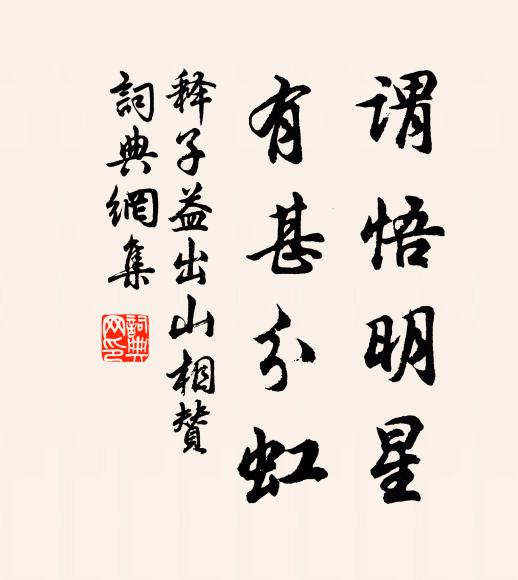 谓悟明星
有甚分虹
释子益出山相赞
词典網集
詞典网印